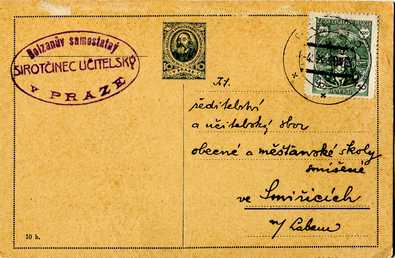 Bolzanův samostatný
SIROTČINEC UČITELSKÝ
V PRAZE
ředitelství
a učitelský sbor
obecné a měšťanské školy
smíšené
ve Smiřicích
n/ Labem
50 h.